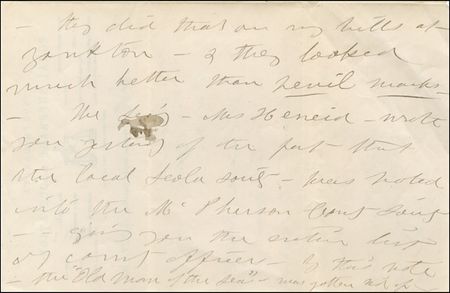 – They did that on my bills at
Yankton – & they looked
much better than pencil marks –
– The – Mrs H – wrote
you yesterday of the fact that
the local Leola song – was noted
into the McPherson Count Song
– – you the entire list
of count officers – If this note
– the "Old man of the sea" – was gotten